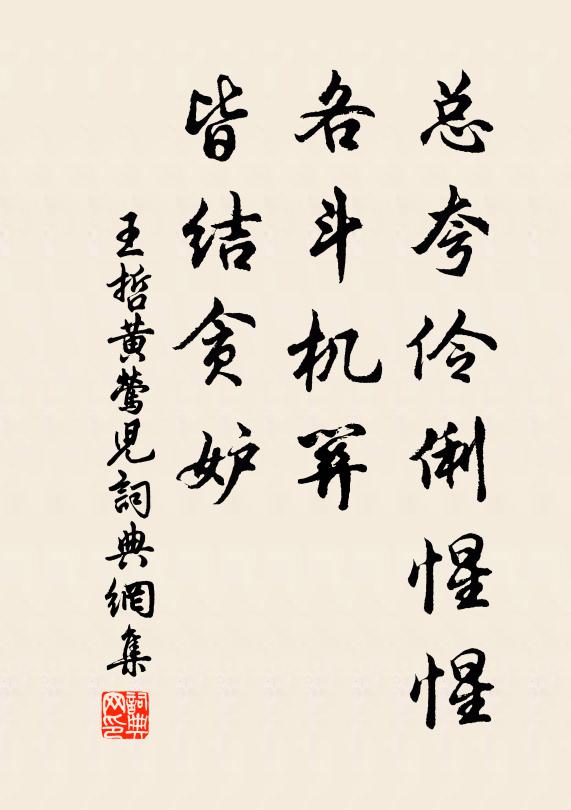 总夸伶俐惺惺
各斗机关
皆结贪妒
王哲黄莺児詞典網集
詞典網印